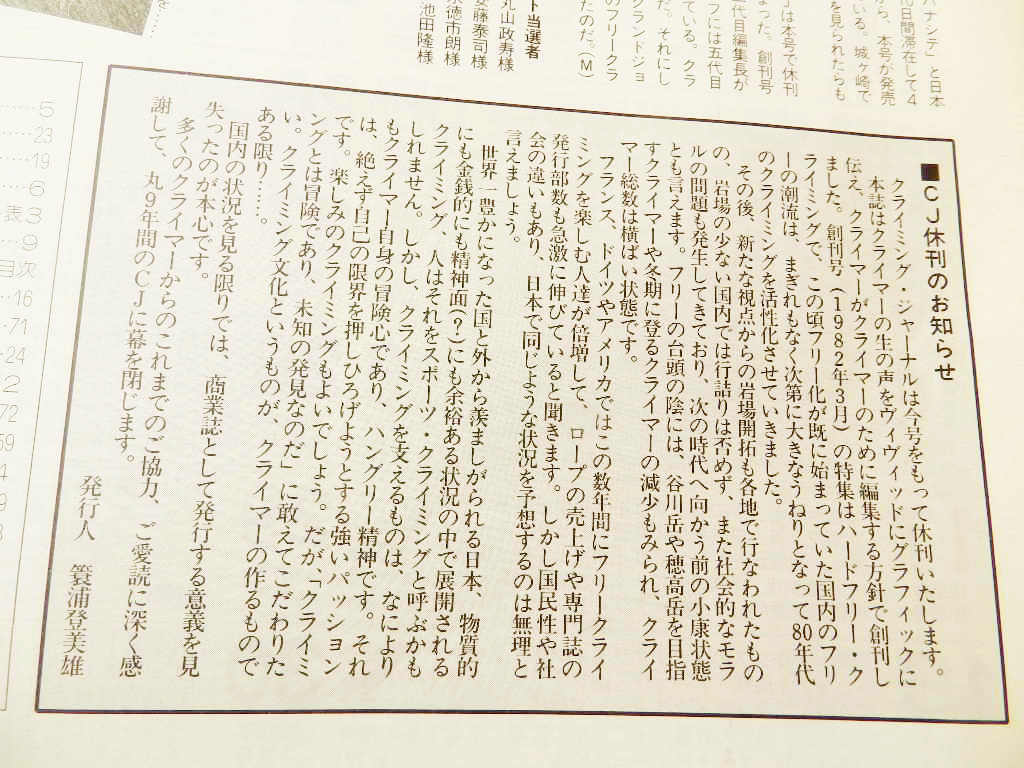 ハナシテ」と日本
0日間滞在して4
から、本号が発売
ている。城ヶ崎で
を見られたらも
は本号で休刊
まった。創刊号
代目編集長が
フには五代目
ている。クラ
ランドジョ
だ。それにし
のフリークラ
たのだ。(M)
ト当選者
丸山政寿様
安藤泰司様
徳市朗様
池田隆様
■CJ休刊のお知らせ
クライミング・ジャーナルは今号をもって休刊いたします。
本誌はクライマーの生の声をヴィヴィッドにグラフィックに
伝え、クライマーがクライマーのために編集する方針で創刊し
ました。創刊号(1982年3月)の特集はハードフリー・ク
ライミングで、この頃フリー化が既に始まっていた国内のフリ
ーの潮流は、まぎれもなく次第に大きなうねりとなって80年代
のクライミングを活性化させていきました。
その後、新たな視点からの岩場開拓も各地で行なわれたもの
の、岩場の少ない国内では行詰りは否めず、また社会的なモラ
ルの問題も発生してきており、次の時代へ向かう前の小康状態
とも言えます。フリーの台頭の陰には、谷川岳や穂高岳を目指
すクライマーや冬期に登るクライマーの減少もみられ、クライ
マー総数は横ばい状態です。
フランス、ドイツやアメリカではこの数年間にフリークライ
ミングを楽しむ人達が倍増して、ロープの売上げや専門誌の
発行部数も急激に伸びていると聞きます。しかし国民性や社
会の違いもあり、日本で同じような状況を予想するのは無理と
言えましょう。
世界一豊かになった国と外から羨ましがられる日本、物質的
にも金銭的にも精神面(?)にも余裕ある状況の中で展開される
クライミング、人はそれをスポーツ・クライミングと呼ぶかも
しれません。しかし、クライミングを支えるものは、なにより
もクライマー自身の冒険心であり、ハングリー精神です。それ
は、絶えず自己の限界を押しひろげようとする強いパッション
です。楽しみのクライミングもよいでしょう。だが、「クライミ
ングとは冒険であり、未知の発見なのだ」に敢えてこだわりた
い。クライミング文化というものが、クライマーの作るもので
ある限り……。
国内の状況を見る限りでは、商業誌として発行する意義を見
失ったのが本心です。
多くのクライマーからのこれまでのご協力、ご愛読に深く感
謝して、丸9年間のCJに幕を閉じます。
発行人 簑浦登美雄
……5
……23
……19
……6
表3
……9
目次
…16
…71
…24
2
72
59
4
9
3